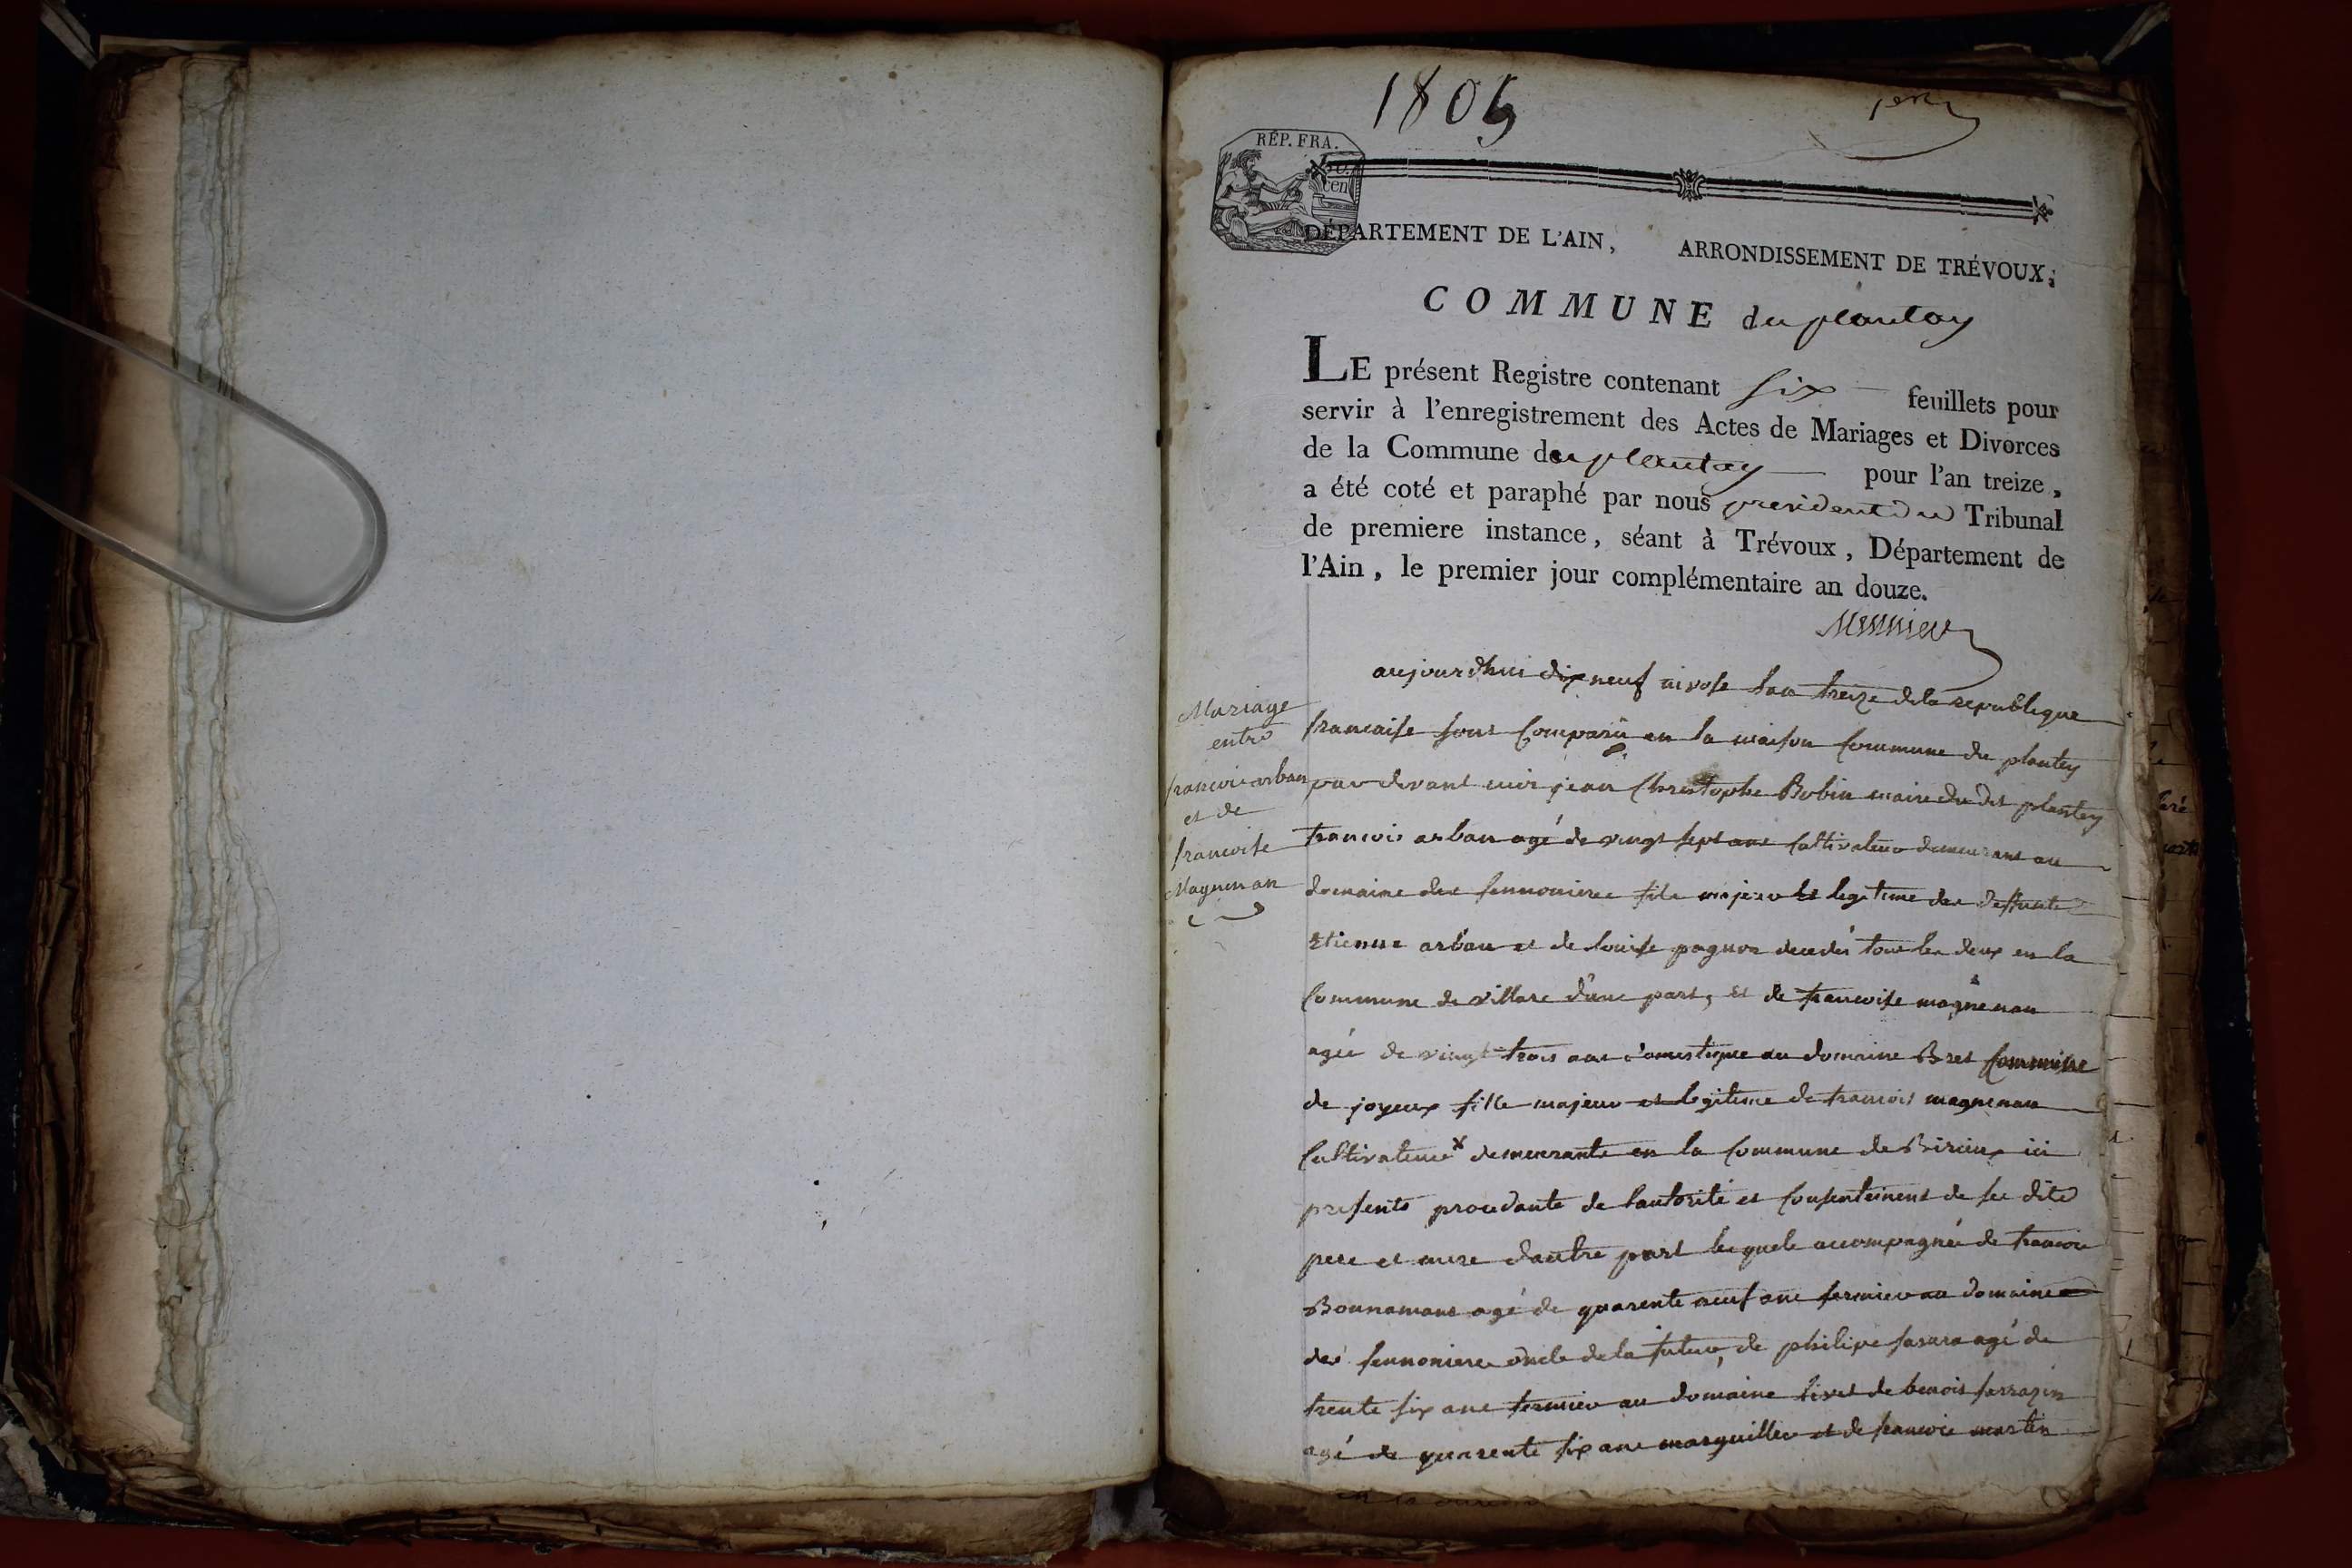 1805
1er
RÉP. FRA.
50.
cen
DÉPARTEMENT DE L'AIN, ARRONDISSEMENT DE TRÉVOUX;
COMMUNE du plantay
LE présent Registre contenant six feuillets pour
servir à l'enregistrement des Actes de Mariages et Divorces
de la Commune du plantay pour l'an treize,
a été coté et paraphé par nous president du Tribunal
de premiere instance, séant à Trévoux, Département de
l'Ain, le premier jour complémentaire an douze.
Mariage
entre
francois arban
et de
francoise
Magnenan
aujourdhui dix neuf nivose lan treize de la republique
francaise sont Comparu en la maison Commune du plantey
par devant moi jean Christophe Bobin maire du dit plantey
francois arban agé de vingt sept ans Cultivateur demeurant au
domaine des sennonieres fils majeur et legitime des deffunts
Etienne arban et de louise pagnon decedés tous les deux en la
Commune de villars d'une part, et de francoise magnenan
agée de vingt trois ans domestique au domaine Bret Commune
de joyeux fille majeur et legitime de francois magnenan
Cultivateur x demeurants en la Commune de Birieux ici
presents procedante de lautorité et Consentement de ses dits
pere et mere dautre part lesquels accompagnés de francois
Bonnamant agé de quarente neuf ans fermier au domaine
des sennonieres oncle de la future, de philipe agé de
trente six ans fermier au domaine de benoit sarrazin
agé de quarente six ans marguillier et de francois martin